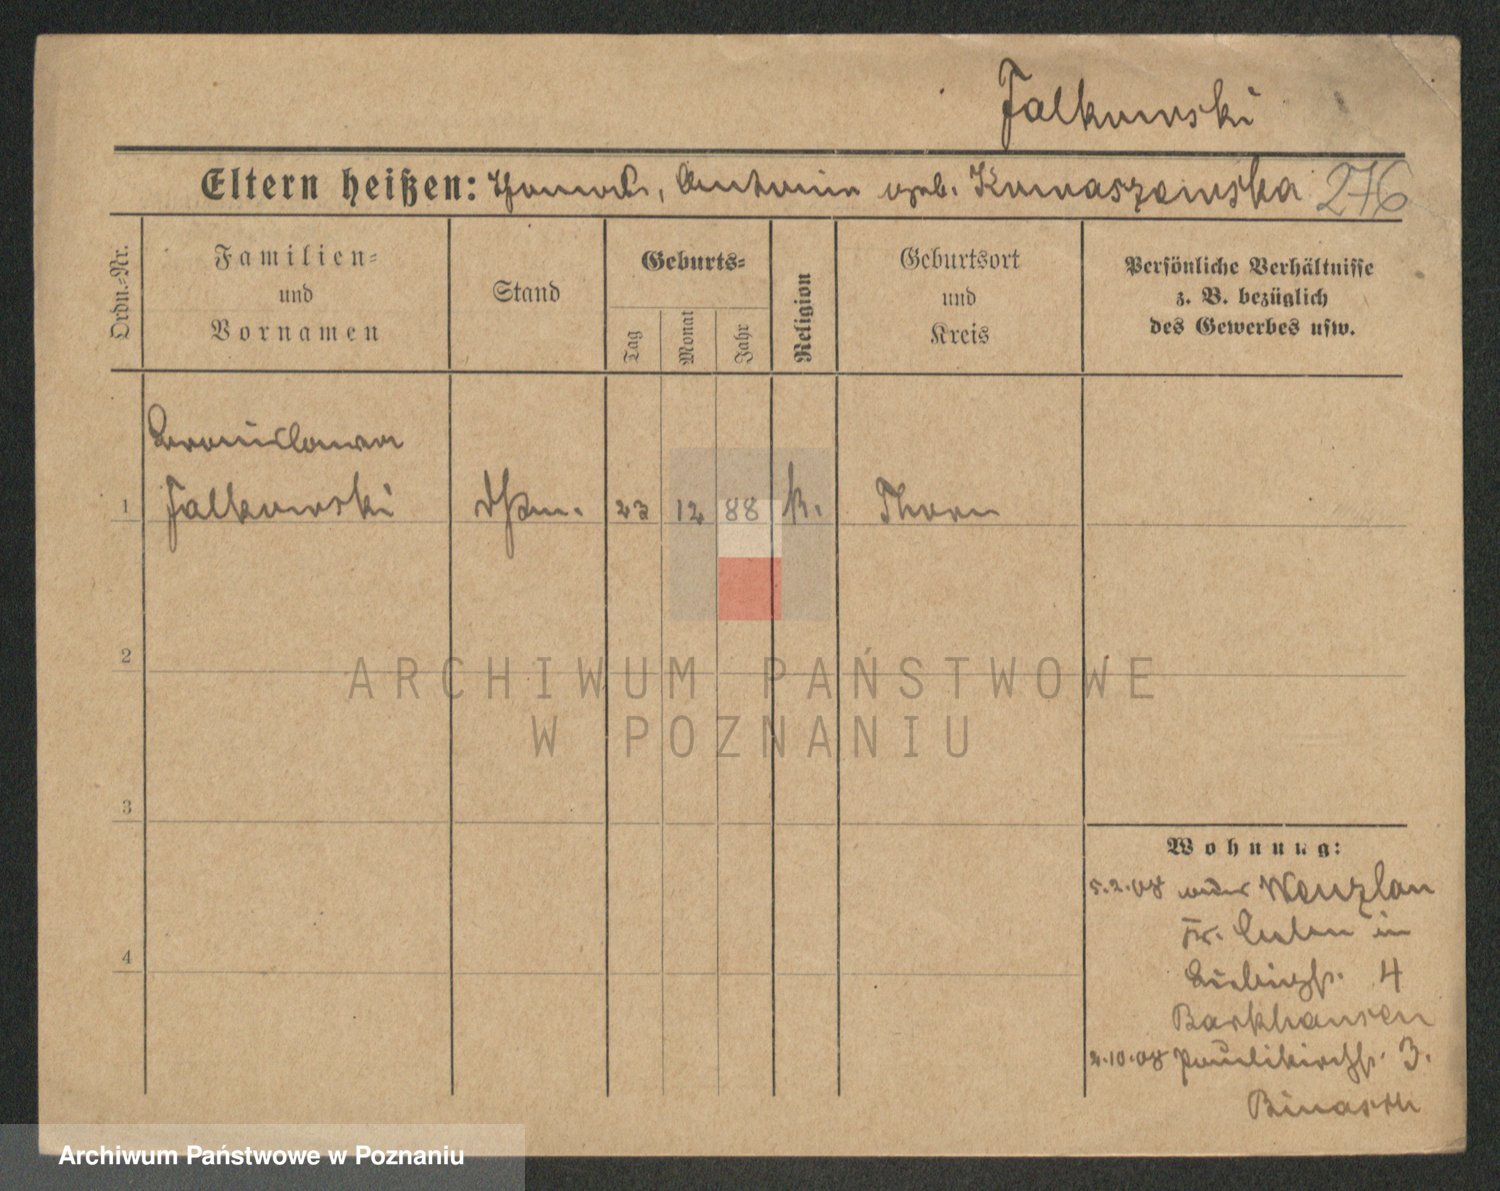 Falkowski
Eltern heißen: Thomas, Antonin geb. Komaszewska 276
Ordn.-Nr.
Familien-
und
Vornamen
Stand
Geburts-
Tag
Monat
Jahr
Religion
Geburtsort
und
Kreis
Persönliche Verhältnisse
z. B. bezüglich
des Gewerbes usw.
Bronislawa
1 Falkowski 23 12 88 k. Thorn
2
3
4
Wohnung:
5.2.08 Wenzlau
in
4
Barkhausen
2.10.08 Paulikirchstr. 3.
ARCHIWUM PAŃSTWOWE
W POZNANIU
Archiwum Państwowe w Poznaniu